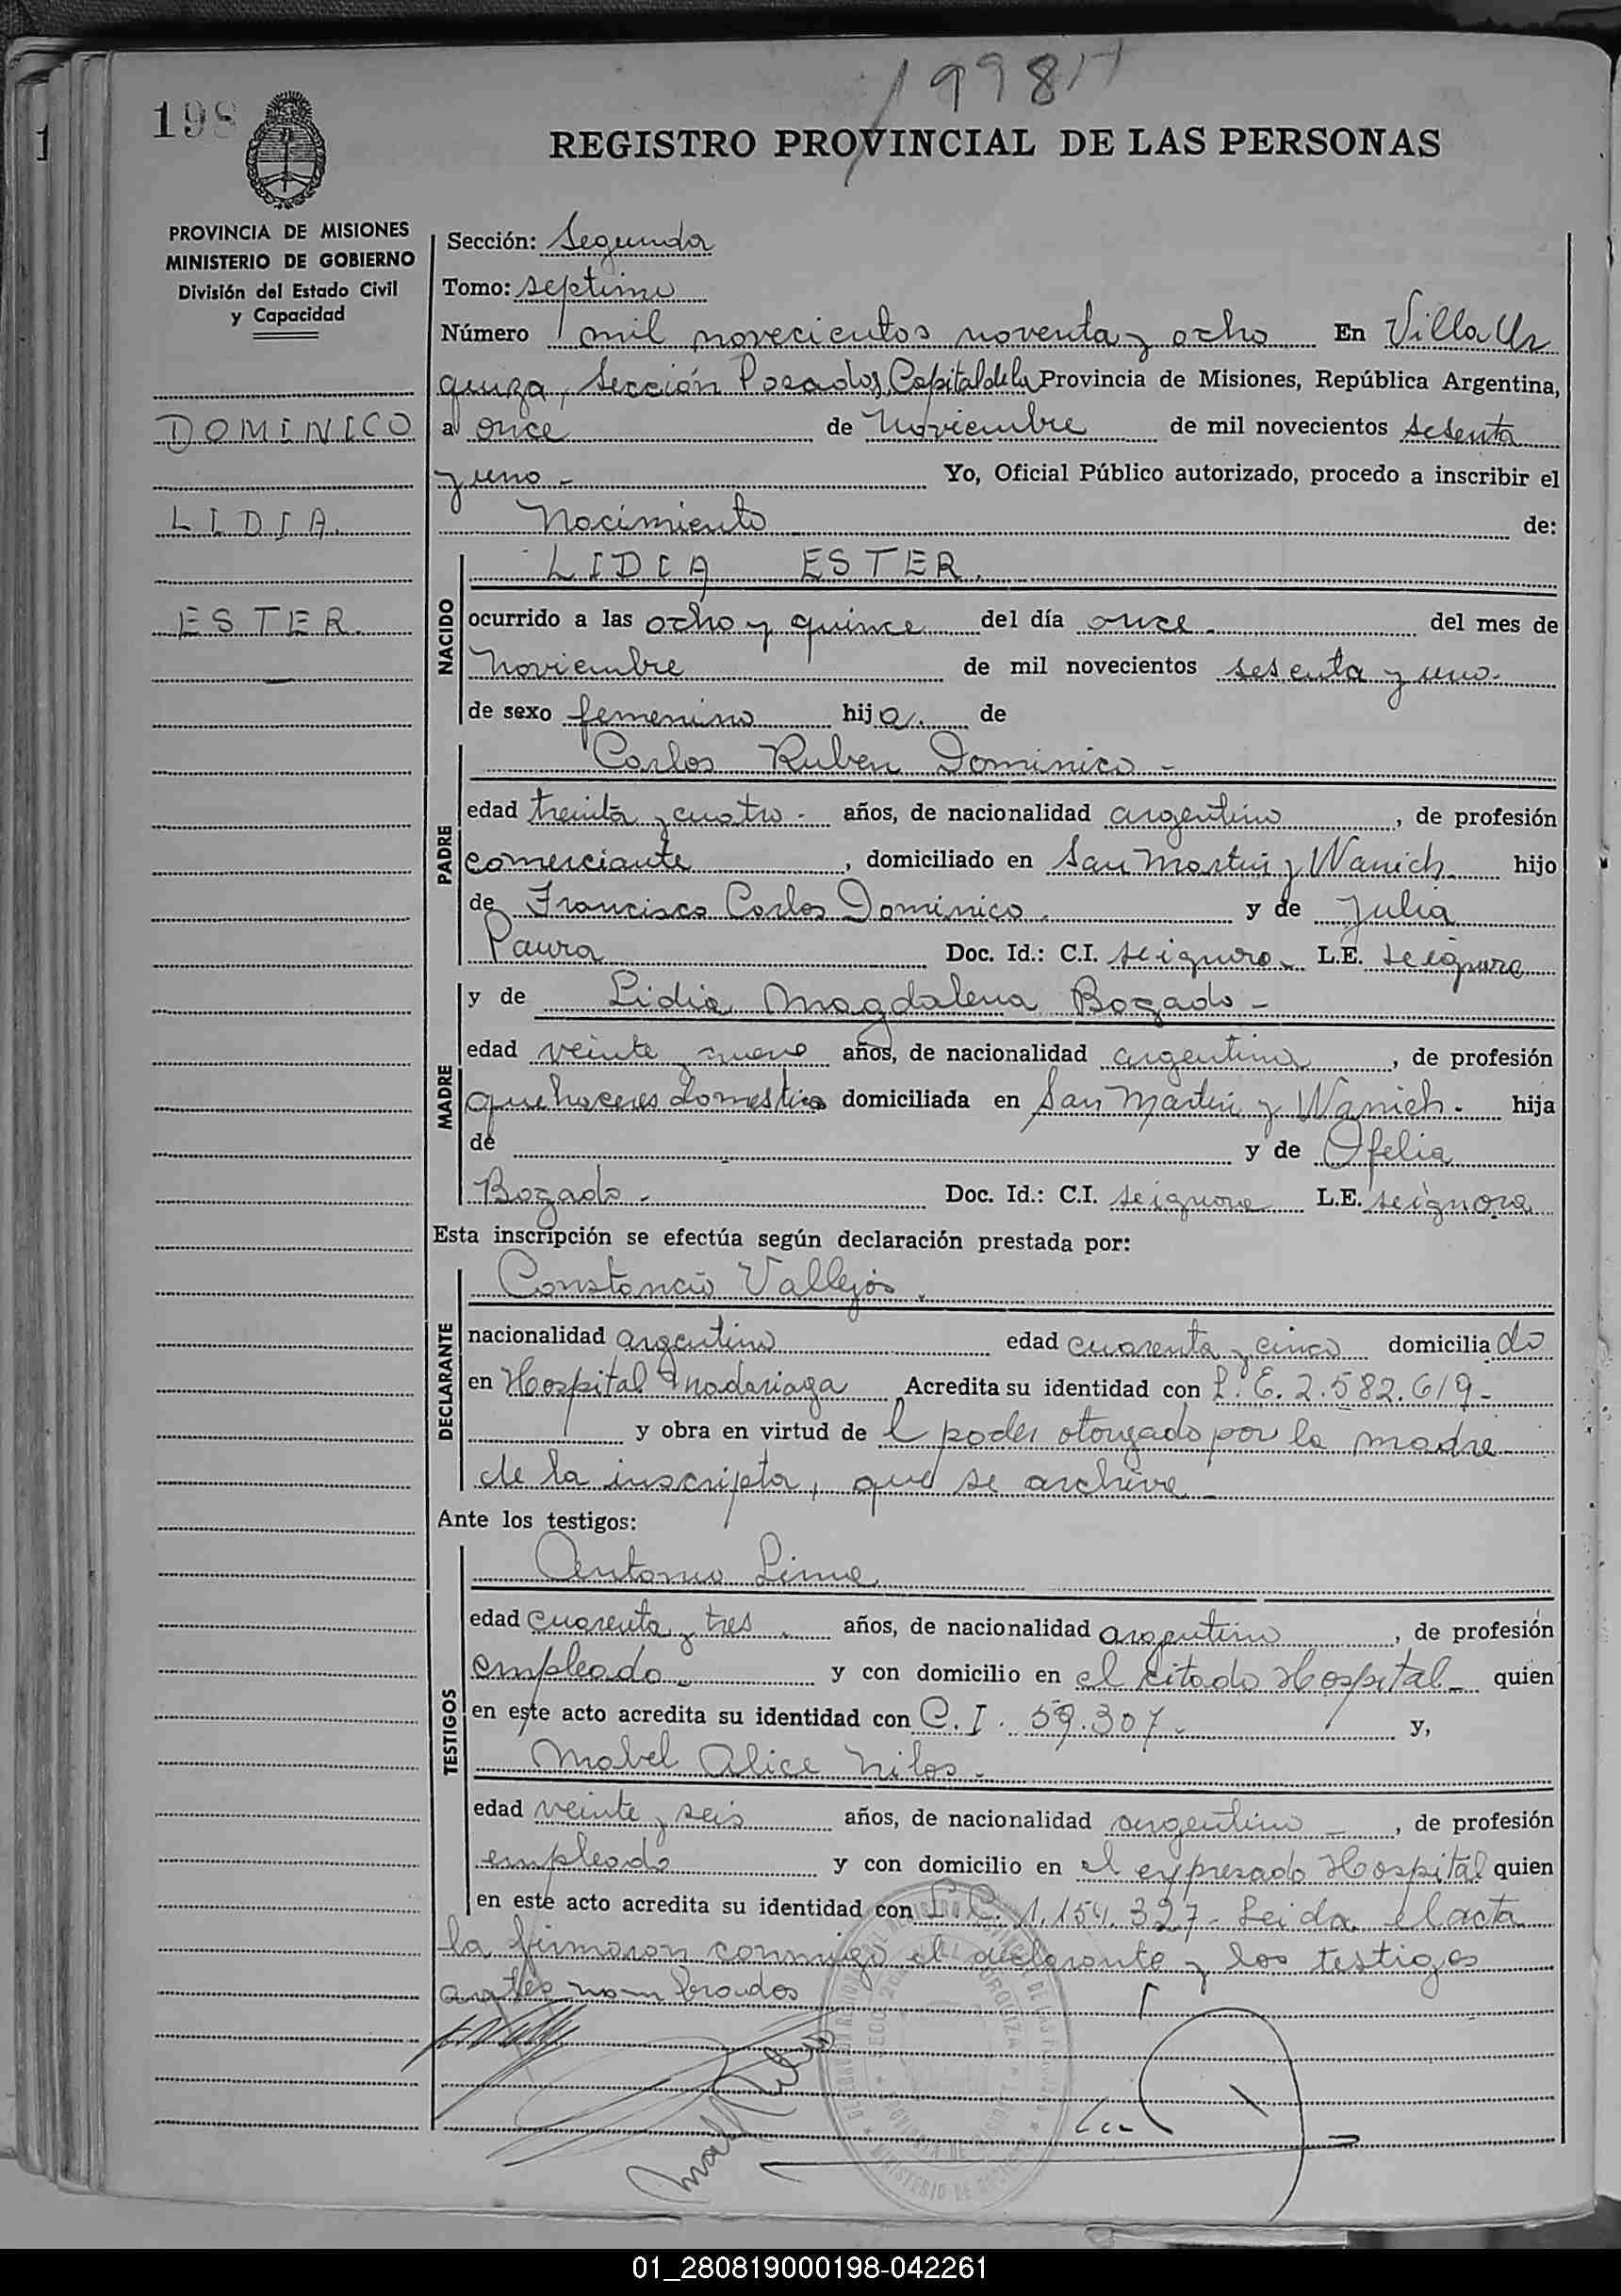 1998
198
REGISTRO PROVINCIAL DE LAS PERSONAS
PROVINCIA DE MISIONES
MINISTERIO DE GOBIERNO
División del Estado Civil
y Capacidad
DOMINICO
LIDIA.
ESTER.
Sección: Segunda
Tomo: septimo
Número mil novecientos noventa y ocho En Villa Ur
quiza, Sección Posadas, Capital de la Provincia de Misiones, República Argentina,
a once de Noviembre de mil novecientos sesenta
y uno - Yo, Oficial Público autorizado, procedo a inscribir el
Nacimiento de:
LIDIA ESTER.
NACIDO
ocurrido a las ocho y quince del día once del mes de
Noviembre de mil novecientos sesenta y uno.
de sexo femenino hija. de
Carlos Ruben Dominico -
PADRE
edad treinta y cuatro - años, de nacionalidad argentino, de profesión
comerciante, domiciliado en San Martin y Wanich hijo
de Francisco Carlos Dominico. y de Julia
Paura Doc. Id.: C.I. se ignora - L.E. se ignora
y de Lidia Magdalena Bogado -
MADRE
edad veinte y nueve años, de nacionalidad argentina, de profesión
quehaceres domestico domiciliada en San Martin y Wanich - hija
de y de Ofelia
Bogado - Doc. Id.: C.I. se ignora L.E. se ignora
Esta inscripción se efectúa según declaración prestada por:
Constancio Vallejos.
DECLARANTE
nacionalidad argentino edad cuarenta y cinco domiciliado
en Hospital Madariaga Acredita su identidad con L.E. 2.582.619-
y obra en virtud de l poder otorgado por la madre
de la inscripta, que se archiva -
Ante los testigos:
Antonio Lima
TESTIGOS
edad cuarenta y tres años, de nacionalidad argentino, de profesión
empleado y con domicilio en el citado Hospital - quien
en este acto acredita su identidad con C.I. 59.307 - y,
Mabel Alice Nilos -
edad veinte y seis años, de nacionalidad argentino -, de profesión
empleado y con domicilio en el expresado Hospital quien
en este acto acredita su identidad con L.C. 1.154.327- Leida el acta
la firmaron conmigo el declarante y los testigos
antes nombrados
01_280819000198-042261